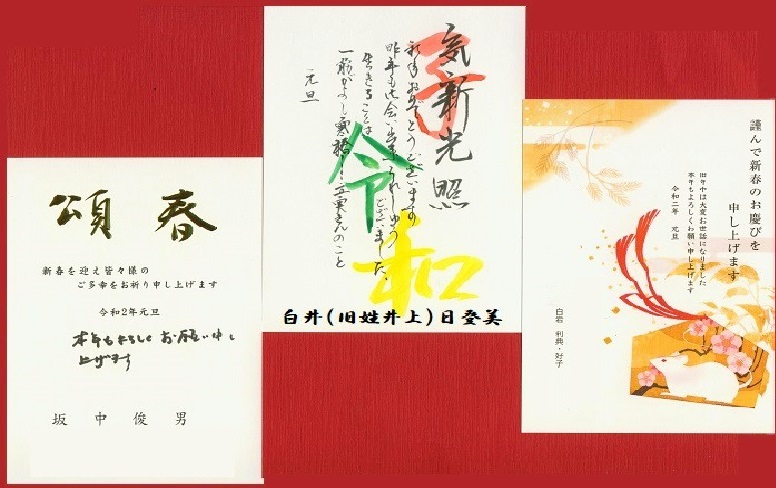 頌春
新春を迎え皆々様の
ご多幸をお祈り申し上げます
令和2年元旦
本年もよろしくお願い申し
上げます
坂中俊男
氣新光照
新年おめでとうございます
昨年も出会い出来うれしゅう
ございました。
生きることは
元旦
子
令
和
白井(旧姓井上)日登美
謹んで新春のお慶びを
申し上げます
旧年中は大変お世話になりました
本年もよろしくお願い申し上げます
令和二年 元旦
白岩 利典・好子